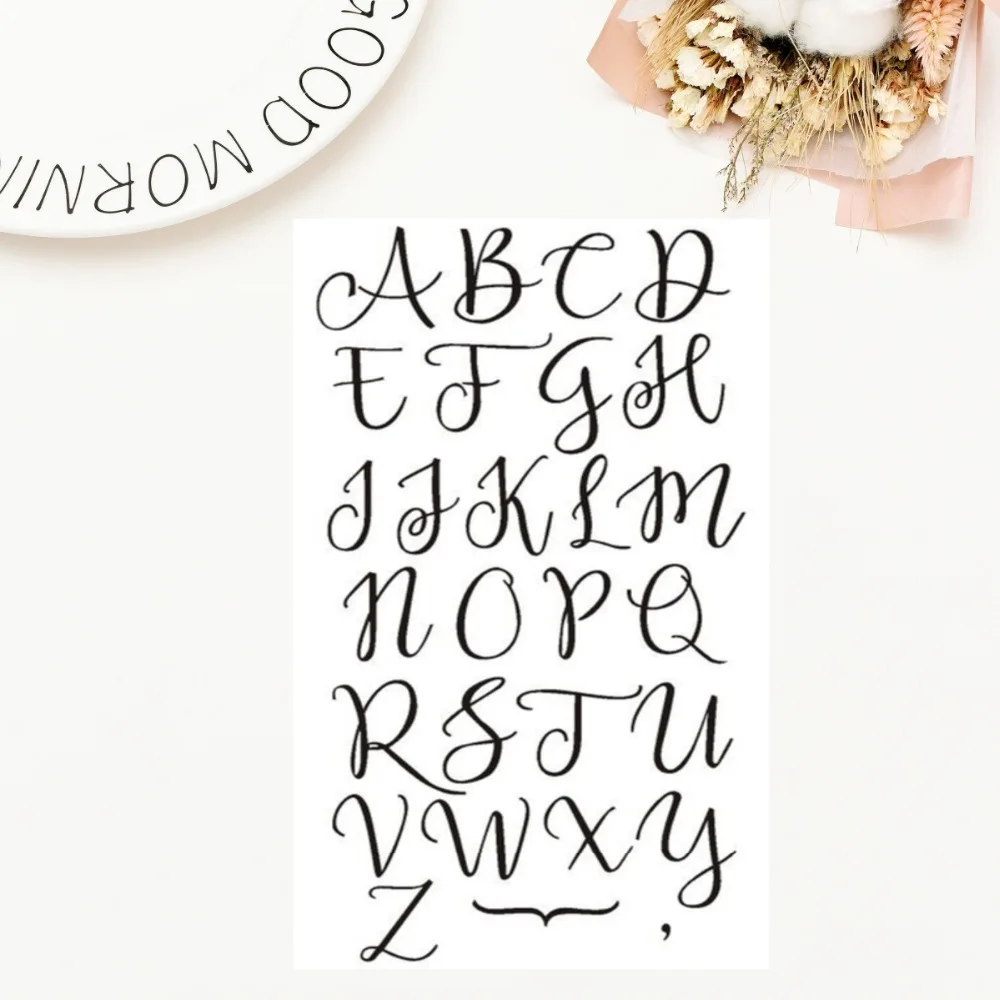 GOOD MORNIN
A B C D
E F G H
I J K L M
N O P Q
R S T U
V W X Y
Z ,